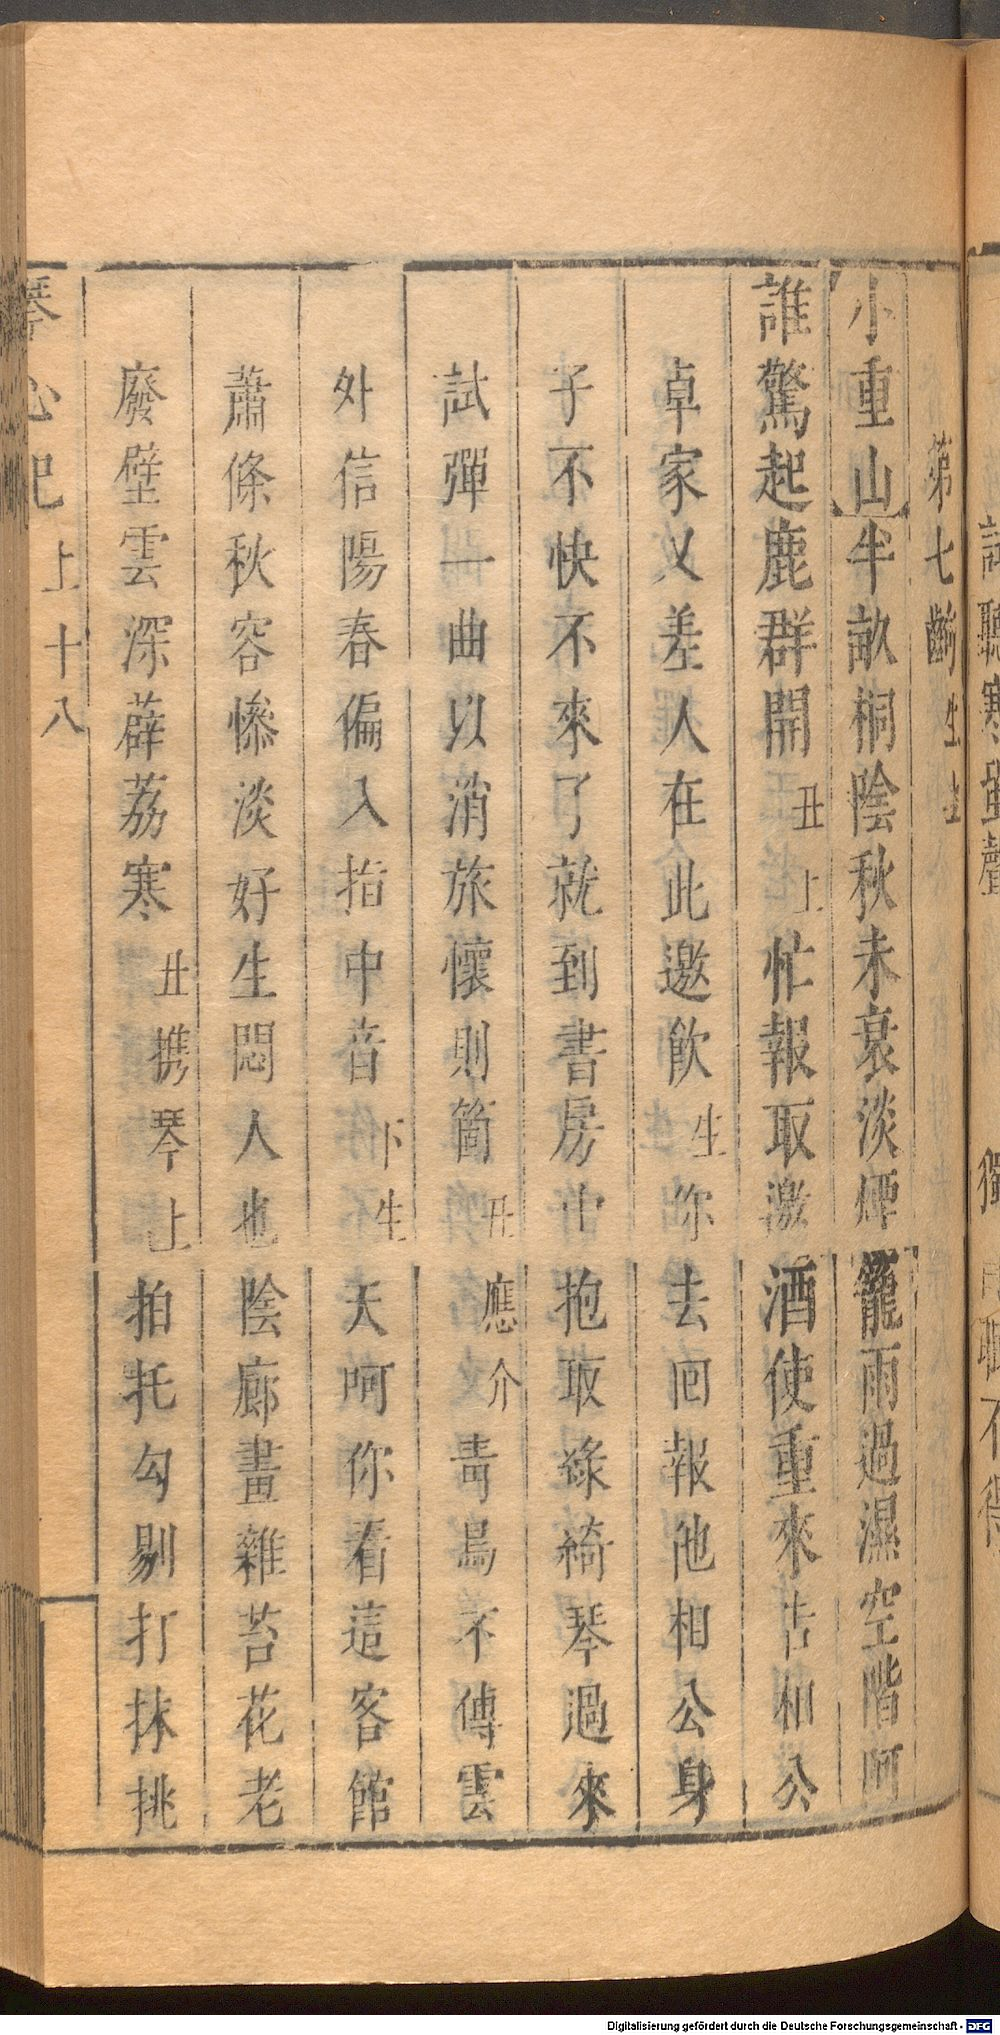 第七齣生上
小重山半畝桐陰秋未衰淡煙籠雨過濕空階呵
誰驚起鹿群開丑上忙報取激酒使重來告相公
卓家乂差人在此邀飲生你去回報他相公身
子不快不來了就到書房中抱取綠綺琴過來
試彈一曲以消旅懷則箇丑應介青鳥不傳雲
外信陽春偏入指中音下生天呵你看這客館
蕭條秋容慘淡好生悶人也陰廊畫雜苔花老
廢壁雲深薜荔寒丑携琴上拍托勾剔打抹挑
琴心記上十八
Digitalisierung gefördert durch die Deutsche Forschungsgemeinschaft - DFG